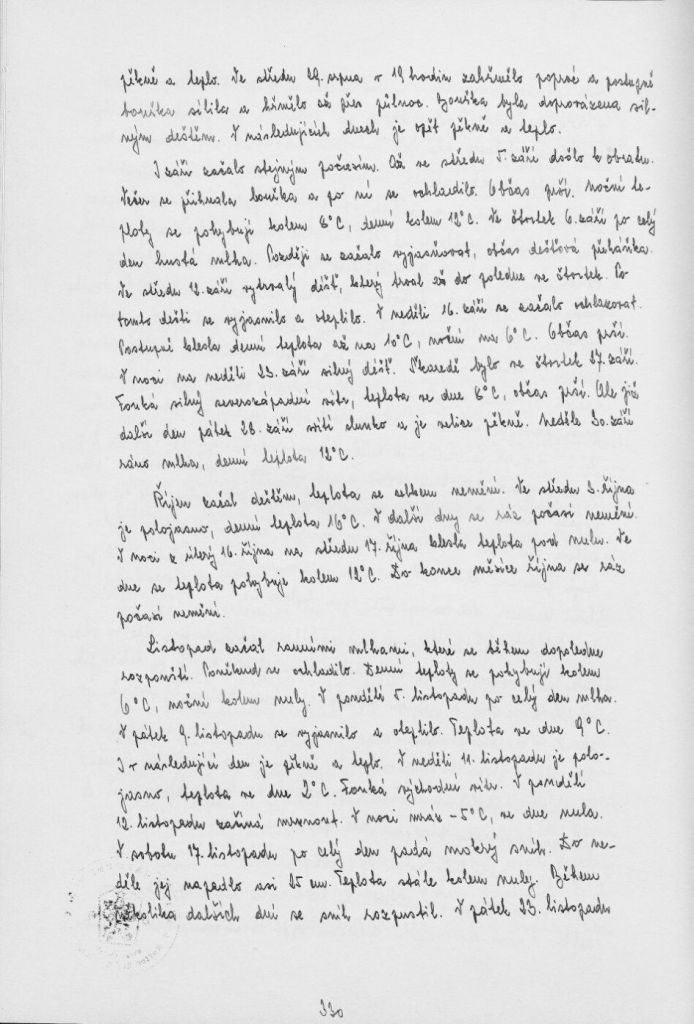 pěkně a teplo. Ve středu 29. srpna v 19 hodin zahřmělo poprvé a postupně
bouřka sílila a hřmělo až přes půlnoc. Bouřka byla doprovázena sil-
ným deštěm. V následujících dnech je opět pěkně a teplo.
I září začalo stejným počasím. Až ve středu 5. září došlo k obratu.
Večer se přihnala bouřka a po ní se ochladilo. Občas prší. Noční te-
ploty se pohybují kolem 8°C, denní kolem 12°C. Ve čtvrtek 6. září po celý
den hustá mlha. Později se začalo vyjasňovat, občas dešťová přeháňka.
Ve středu 12. září vytrvalý déšť, který trval až do poledne ve čtvrtek. Po
tomto dešti se vyjasnilo a oteplilo. V neděli 16. září se začalo ochlazovat.
Postupně klesla denní teplota až na 10°C, noční na 6°C. Občas prší.
V noci na neděli 23. září silný déšť. Škaredě bylo ve čtvrtek 27. září.
Fouká silný severozápadní vítr, teplota ve dne 8°C, občas prší. Ale již
další den pátek 28. září svítí slunko a je velice pěkně. Neděle 30. září
ráno mlha, denní teplota 12°C.
Říjen začal deštěm, teplota se celkem nemění. Ve středu 3. října
je polojasno, denní teplota 16°C. V další dny se ráz počasí nemění.
V noci z úterý 16. října na středu 17. října klesla teplota pod nulu. Ve
dne se teplota pohybuje kolem 12°C. Do konce měsíce října se ráz
počasí nemění.
Listopad začal ranními mlhami, které se během dopoledne
rozpouští. Poněkud se ochladilo. Denní teploty se pohybují kolem
6°C, noční kolem nuly. V pondělí 5. listopadu po celý den mlha.
V pátek 9. listopadu se vyjasnilo a oteplilo. Teplota ve dne 9°C.
I v následující den je pěkně a teplo. V neděli 11. listopadu je polo-
jasno, teplota ve dne 2°C. Fouká východní vítr. V pondělí
12. listopadu začíná mrznout. V noci mráz -5°C, ve dne nula.
V sobotu 17. listopadu po celý den padá mokrý sníh. Do ne-
děle jej napadlo asi 25 cm. Teplota stále kolem nuly. Během
několika dalších dní se sníh rozpustil. V pátek 23. listopadu
330